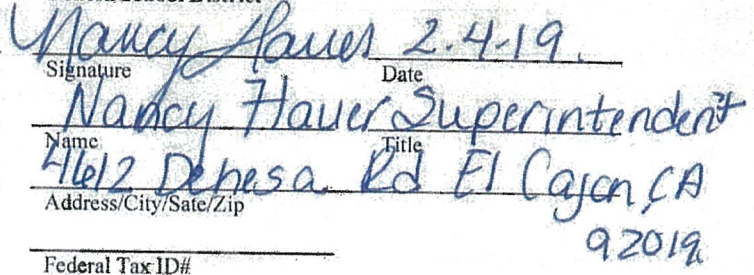 Nancy Hauer 2.4-19.
Signature Date
Nancy Hauer Superintendent
Name Title
4612 Dehesa Rd El Cajon, CA
Address/City/Sate/Zip
92019
Federal Tax ID#